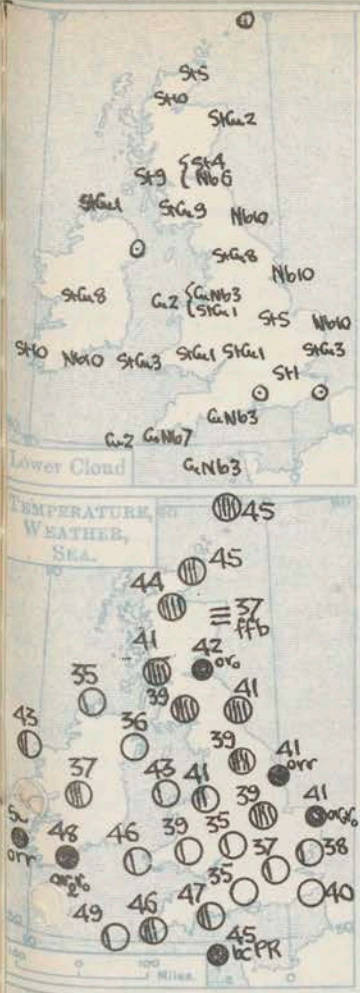 St5
St10
StCu2
{St4
St9 {Nb6
StCu1 StCu9 Nb10
StCu8
Nb10
StCu8 Cu2 {CuNb3
{StCu1
St5 Nb10
St10 Nb10 StCu3 StCu1 StCu1 StCu3
St1
CuNb3
Cu2 CuNb7
CuNb3
50
Lower Cloud
TEMPERATURE,
WEATHER,
SEA.
45
45
44
37
ffb
41 42
oro
35 39 41
43 36
39 41
orr
37 43 41 39 41
orr
48 46 39 35 37 38
35 40
49 46 47
45
bcPR
50
100 0 100
Miles.
0